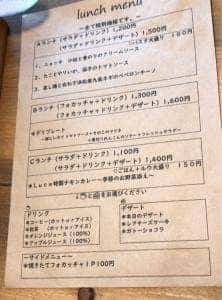 lunch menu
~全て税別価格です。~
Aランチ (サラダ+ドリンク) 1,200円
(サラダ+ドリンク+デザート) 1,500円
1.
のクリームソース
2. たことやりいか、茄子のトマトソース
3.
のペペロンチーノ
Bランチ (フォカッチャ+ドリンク) 1,300円
(フォカッチャ+ドリンク+デザート) 1,600円
*デリプレート
Cランチ (サラダ+ドリンク) 1,100円
(サラダ+ドリンク+デザート) 1,400円
(ごはん+ルウ大盛り 150円)
特製チキンカレー季節のお野菜添え
をお選びください
ドリンク
*コーヒー(ホットor アイス)
*紅茶 (ホットor アイス)
*オレンジジュース (100%)
*アップルジュース (100%)
デザート
*本日のデザート
*レアチーズケーキ
*ガトーショコラ
~サイドメニュー~
*焼きたてフォカッチャ 1P100円